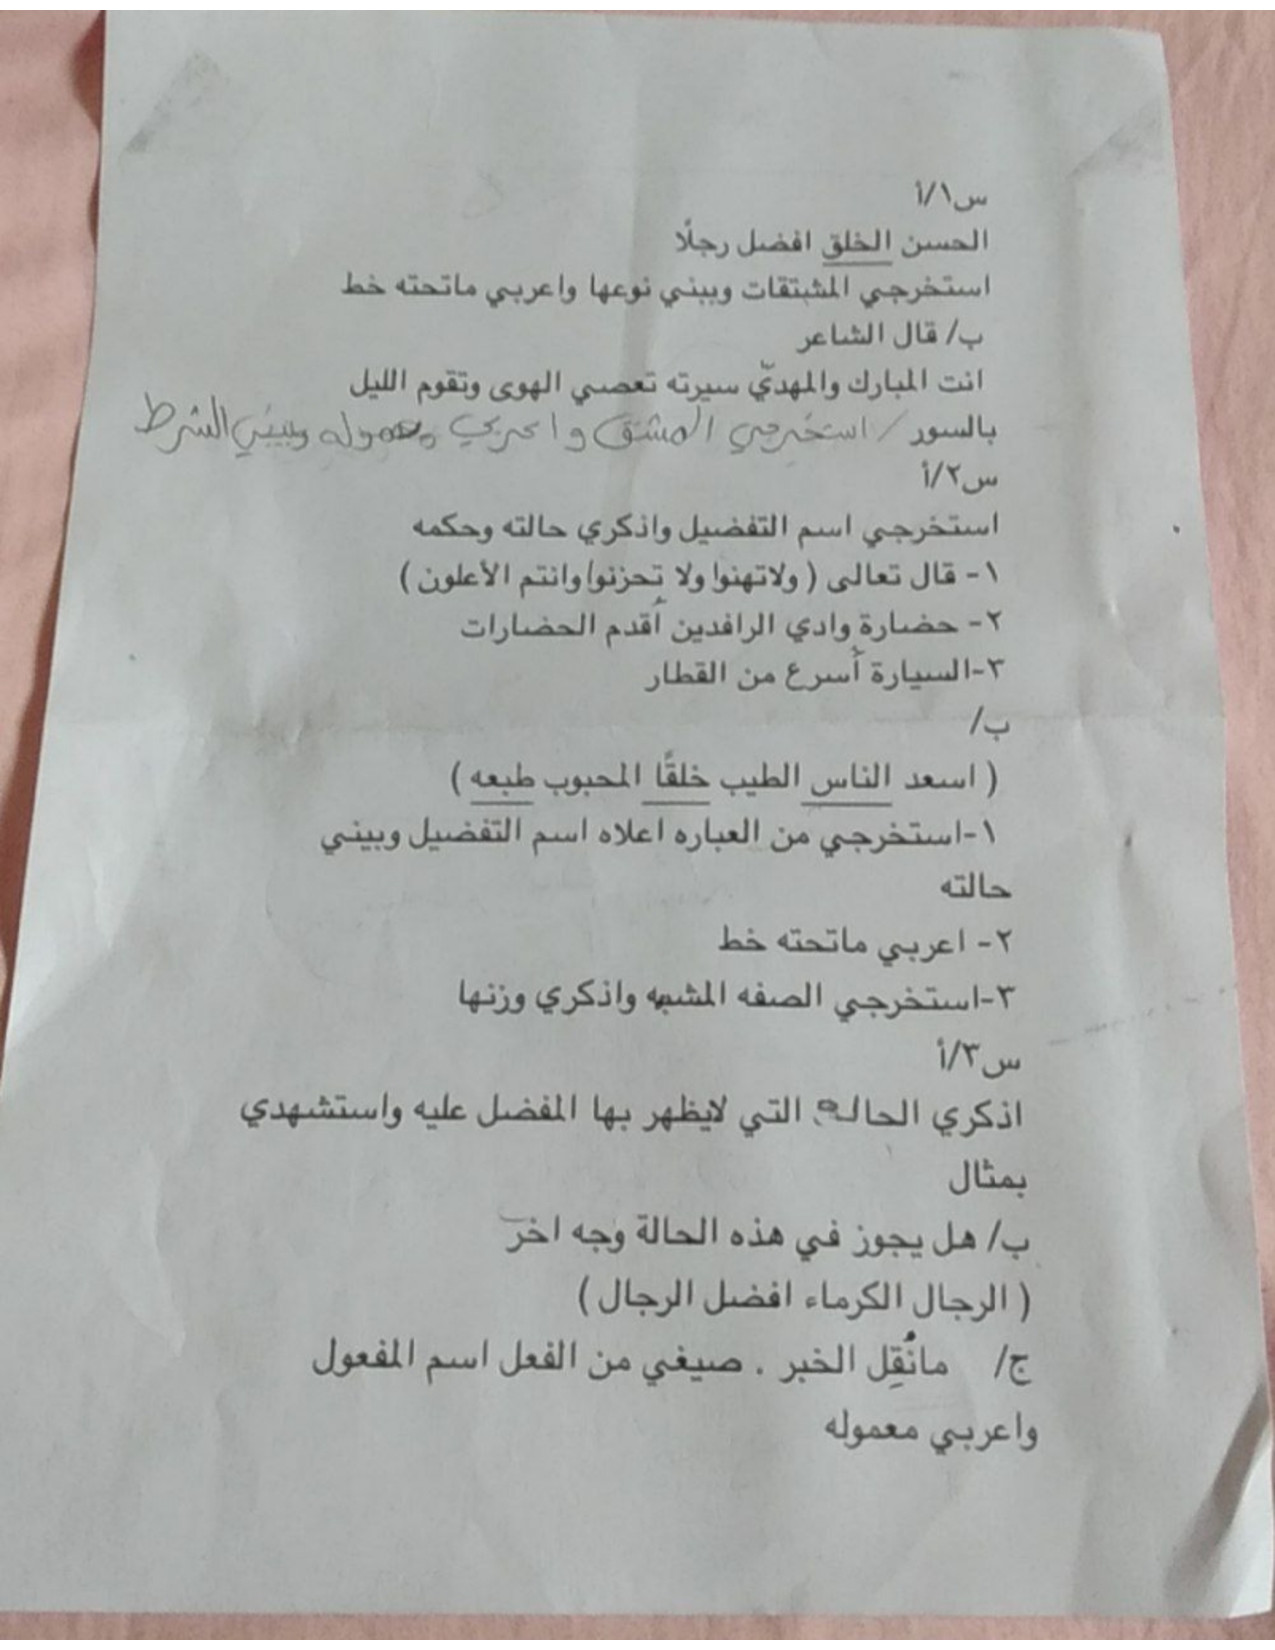 س١/أ
الحسن الخلق افضل رجلًا
استخرجي المشتقات وبيني نوعها واعربي ماتحته خط
ب/ قال الشاعر
انت المبارك والمهديّ سيرته تعصي الهوى وتقوم الليل
بالسور / استخرجي المشتق واعربي معموله وبيني الشرط
س٢/أ
استخرجي اسم التفضيل واذكري حالته وحكمه
١- قال تعالى ( ولاتهنوا ولا تحزنوا وانتم الأعلون )
٢- حضارة وادي الرافدين أقدم الحضارات
٣-السيارة أسرع من القطار
ب/
( اسعد الناس الطيب خلقًا المحبوب طبعه )
١-استخرجي من العباره اعلاه اسم التفضيل وبيني
حالته
٢- اعربي ماتحته خط
٣-استخرجي الصفه المشبه واذكري وزنها
س٣/أ
اذكري الحاله التي لايظهر بها المفضل عليه واستشهدي
بمثال
ب/ هل يجوز في هذه الحالة وجه اخر
( الرجال الكرماء افضل الرجال )
ج/ مانُقِل الخبر . صيغي من الفعل اسم المفعول
واعربي معموله